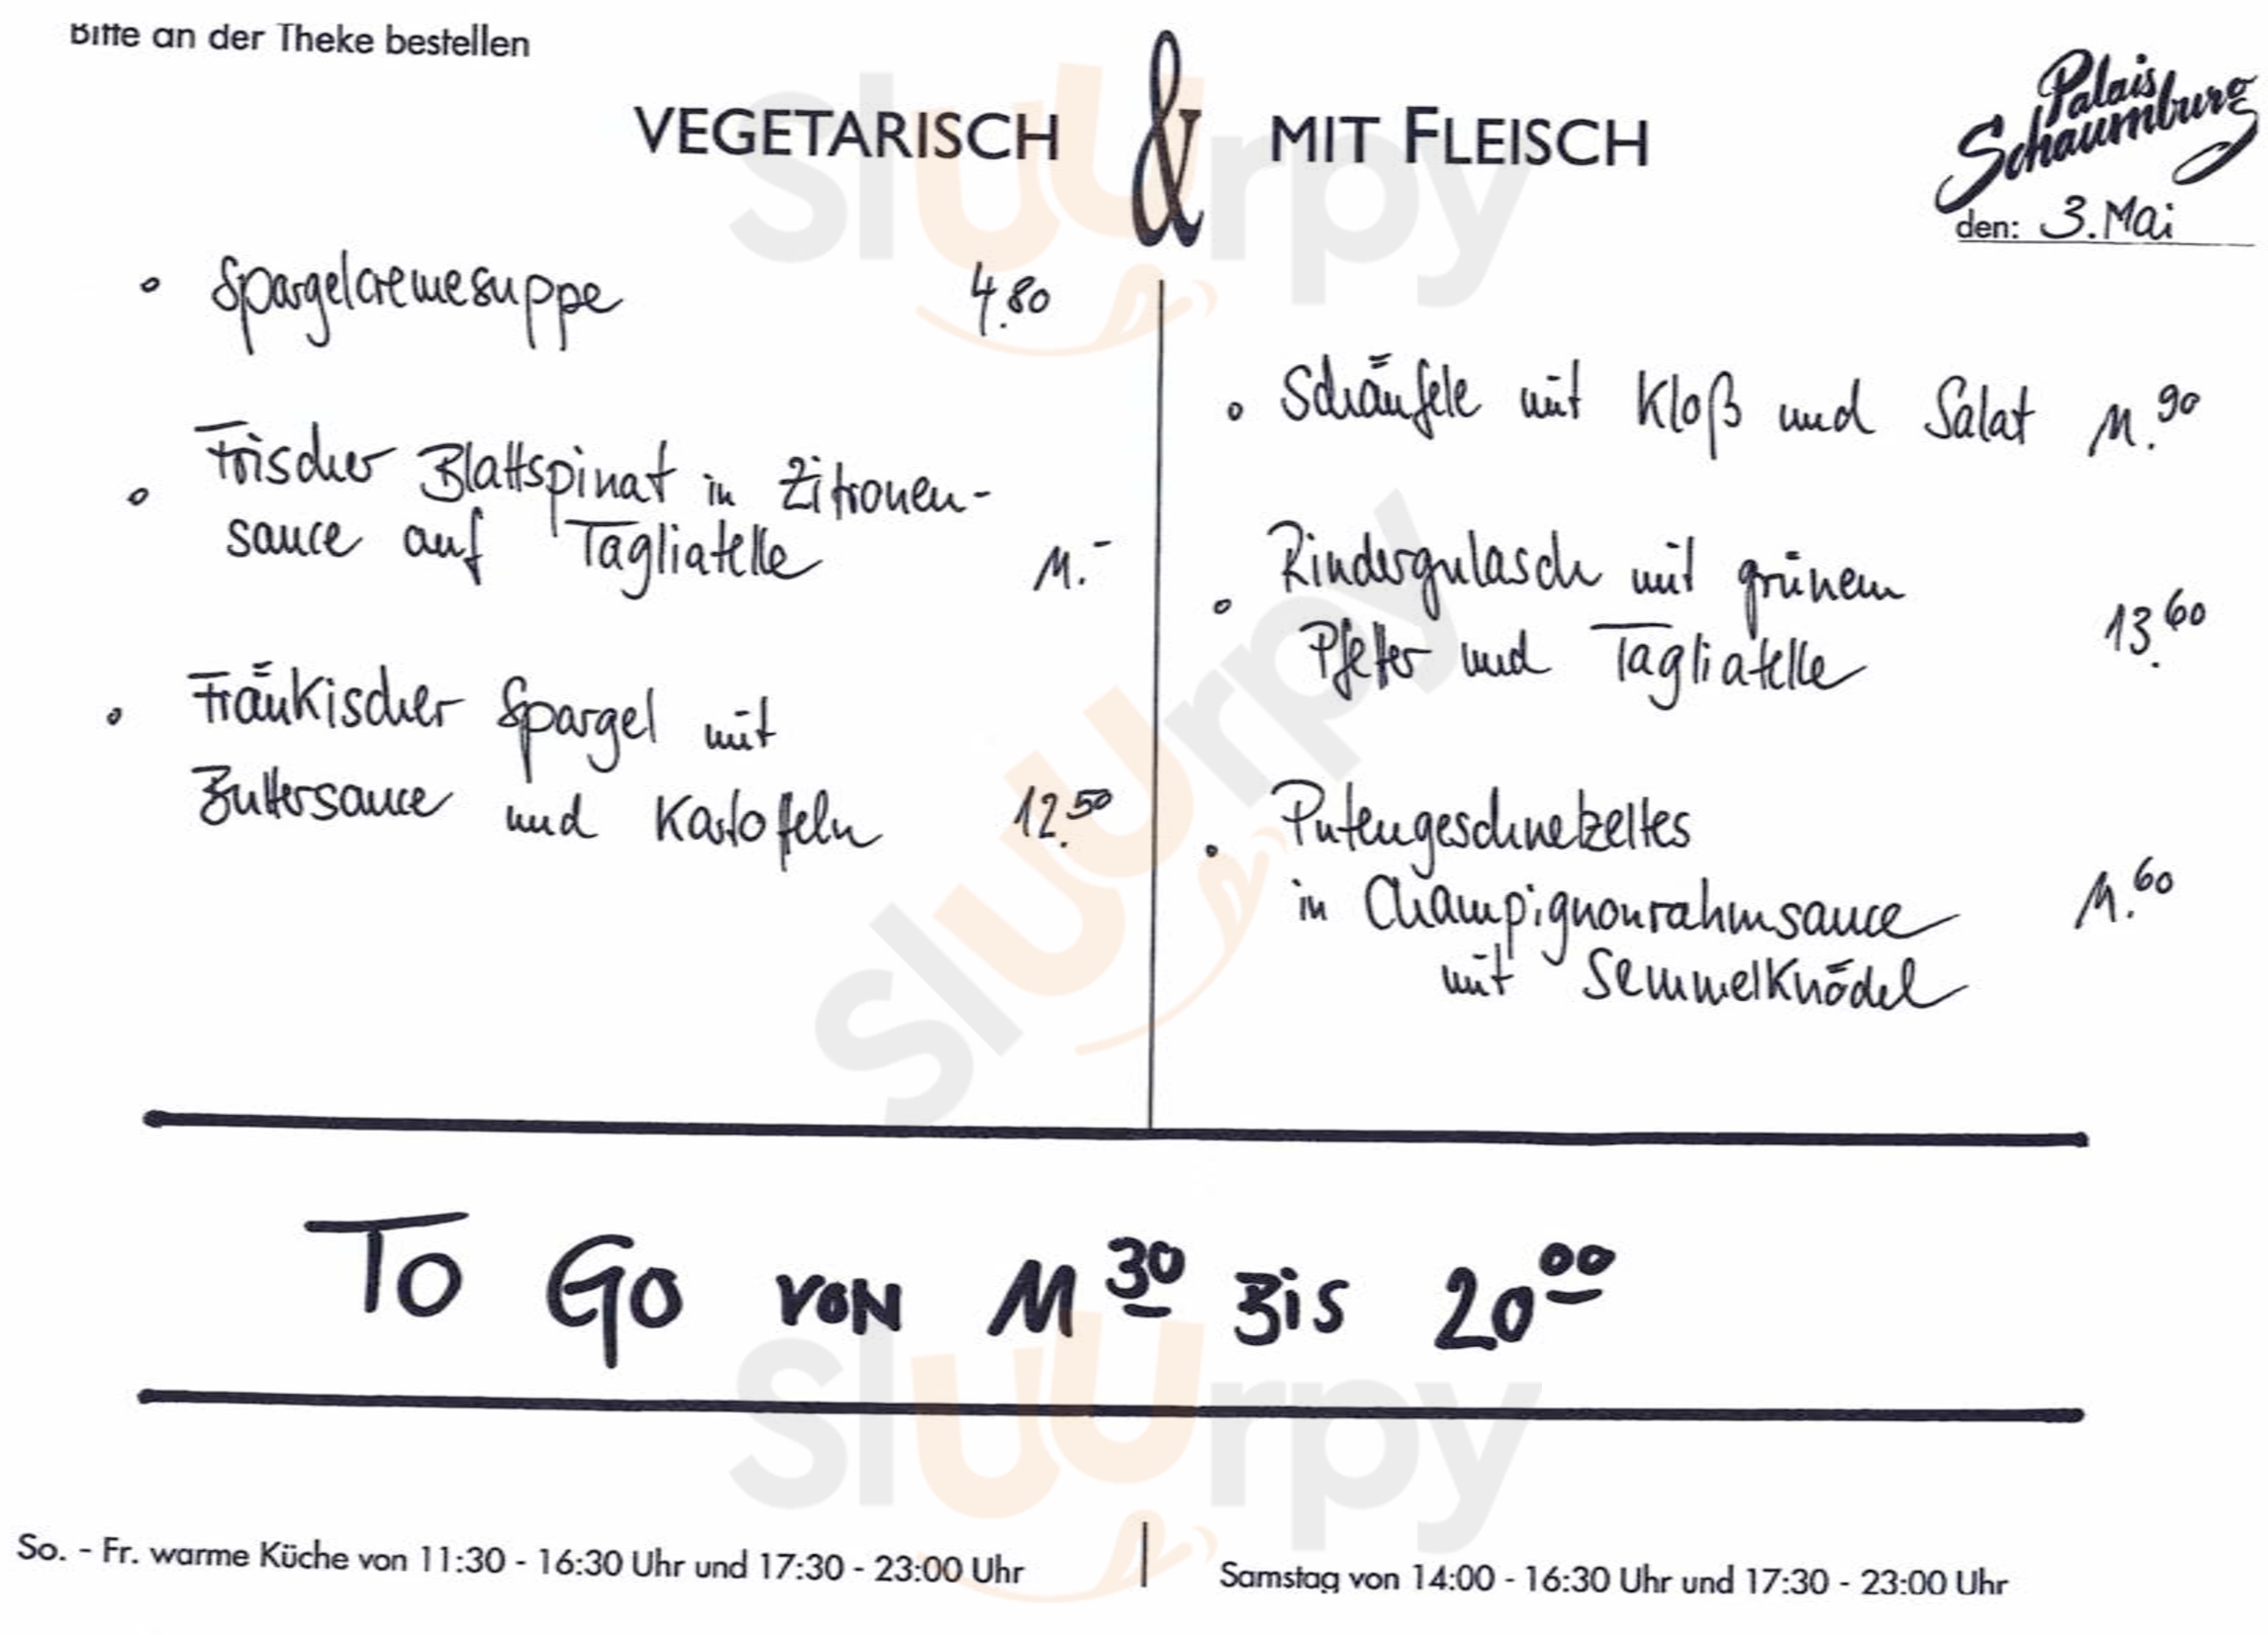 Bitte an der Theke bestellen
VEGETARISCH & MIT FLEISCH
Palais
Schaumburg
den: 3. Mai
° Spargelcremesuppe 4.80
° Frischer Blattspinat in Zitronen-
sauce auf Tagliatelle 11.-
° Fränkischer Spargel mit
Buttersauce und Kartoffeln 12.50
° Schäufele mit Kloß und Salat 11.90
° Rindergulasch mit grünem
Pfeffer und Tagliatelle 13.60
° Putengeschnetzeltes
in Champignonrahmsauce 11.60
mit Semmelknödel
To Go von 11 30 Bis 20 00
So. - Fr. warme Küche von 11:30 - 16:30 Uhr und 17:30 - 23:00 Uhr | Samstag von 14:00 - 16:30 Uhr und 17:30 - 23:00 Uhr
sluurpy
sluurpy
sluurpy